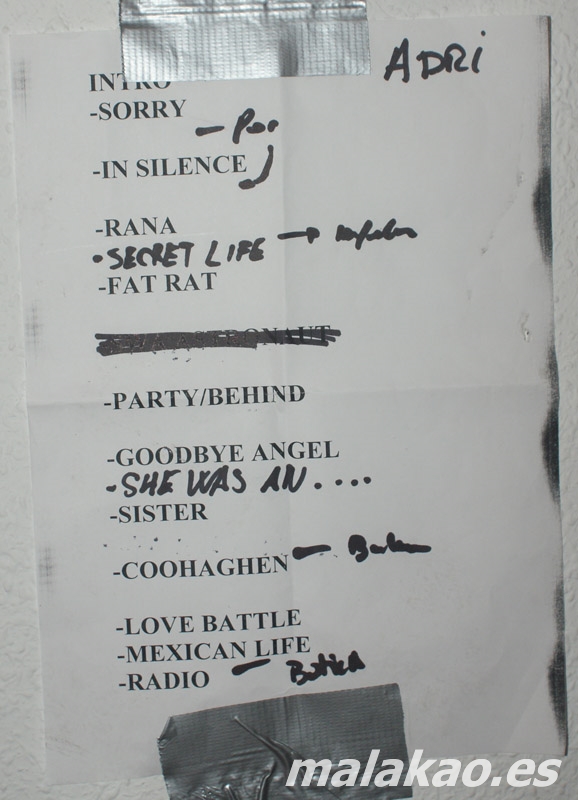 ADRI
INTRO
-SORRY
-IN SILENCE
-RANA
• SECRET LIFE
-FAT RAT
-PARTY/BEHIND
-GOODBYE ANGEL
• SHE WAS AN ....
-SISTER
-COOHAGHEN
-LOVE BATTLE
-MEXICAN LIFE
-RADIO
malakao.es